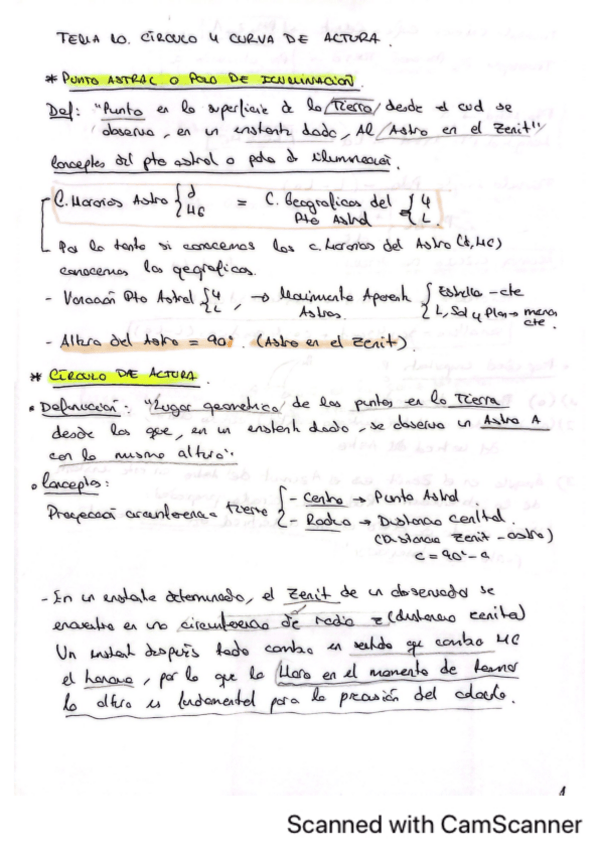 TEMA 10. CÍRCULO Y CURVA DE ALTURA.
* PUNTO ASTRAL O POLO DE ILUMINACIÓN.
Def: "Punto en la superficie de la Tierra desde el cual se
observa, en un instante dado, Al Astro en el Zenit"
Conceptos del pto astral o polo de iluminación.
- C. Horarias Astro { d = C. Geográficas del { φ
HG Pto Astral L.
Por lo tanto si conocemos las c. horarias del Astro (d, HG)
conocemos las geográficas.
- Variación Pto Astral { φ, L → Movimiento Aparente { Estrella - cte
Astros. L, Sol y Plan → menos
cte.
- Altura del Astro = 90º. (Astro en el Zenit).
* CÍRCULO DE ALTURA.
• Definición: "Lugar geométrico de los puntos en la Tierra
desde los que, en un instante dado, se observa un Astro A
con la misma altura".
• Conceptos:
Proyección circunferencia Tierra { - Centro → Punto Astral.
- Radio → Distancia cenital.
(Distancia Zenit - astro)
c = 90º - a
- En un instante determinado, el Zenit de un observador se
encuentra en una circunferencia de radio z (distancia cenital)
Un instante después todo cambia en sentido que cambia HG
el horario, por lo que la Hora en el momento de tomar
la altura es fundamental para la precisión del cálculo.
1
Scanned with CamScanner